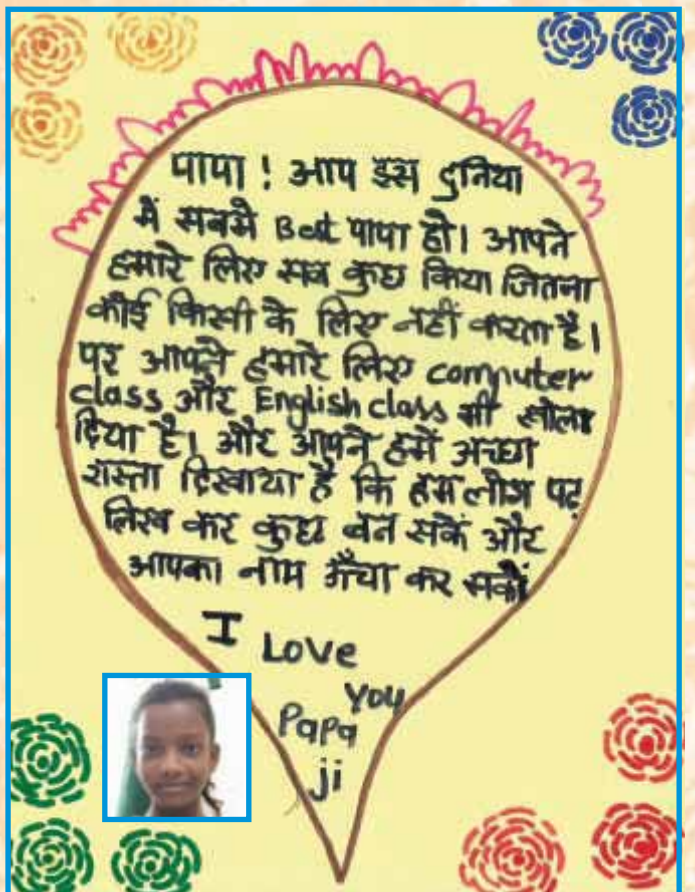 पापा ! आप इस दुनिया
में सबसे Best पापा हो। आपने
हमारे लिए सब कुछ किया जितना
कोई किसी के लिए नहीं करता है।
पर आपने हमारे लिए computer
class और English class भी खोला
दिया है। और आपने हमें अच्छा
रास्ता दिखाया है कि हम लोग पढ़
लिख कर कुछ बन सकें और
आपका नाम ऊँचा कर सकें
I Love
You
Papa
ji